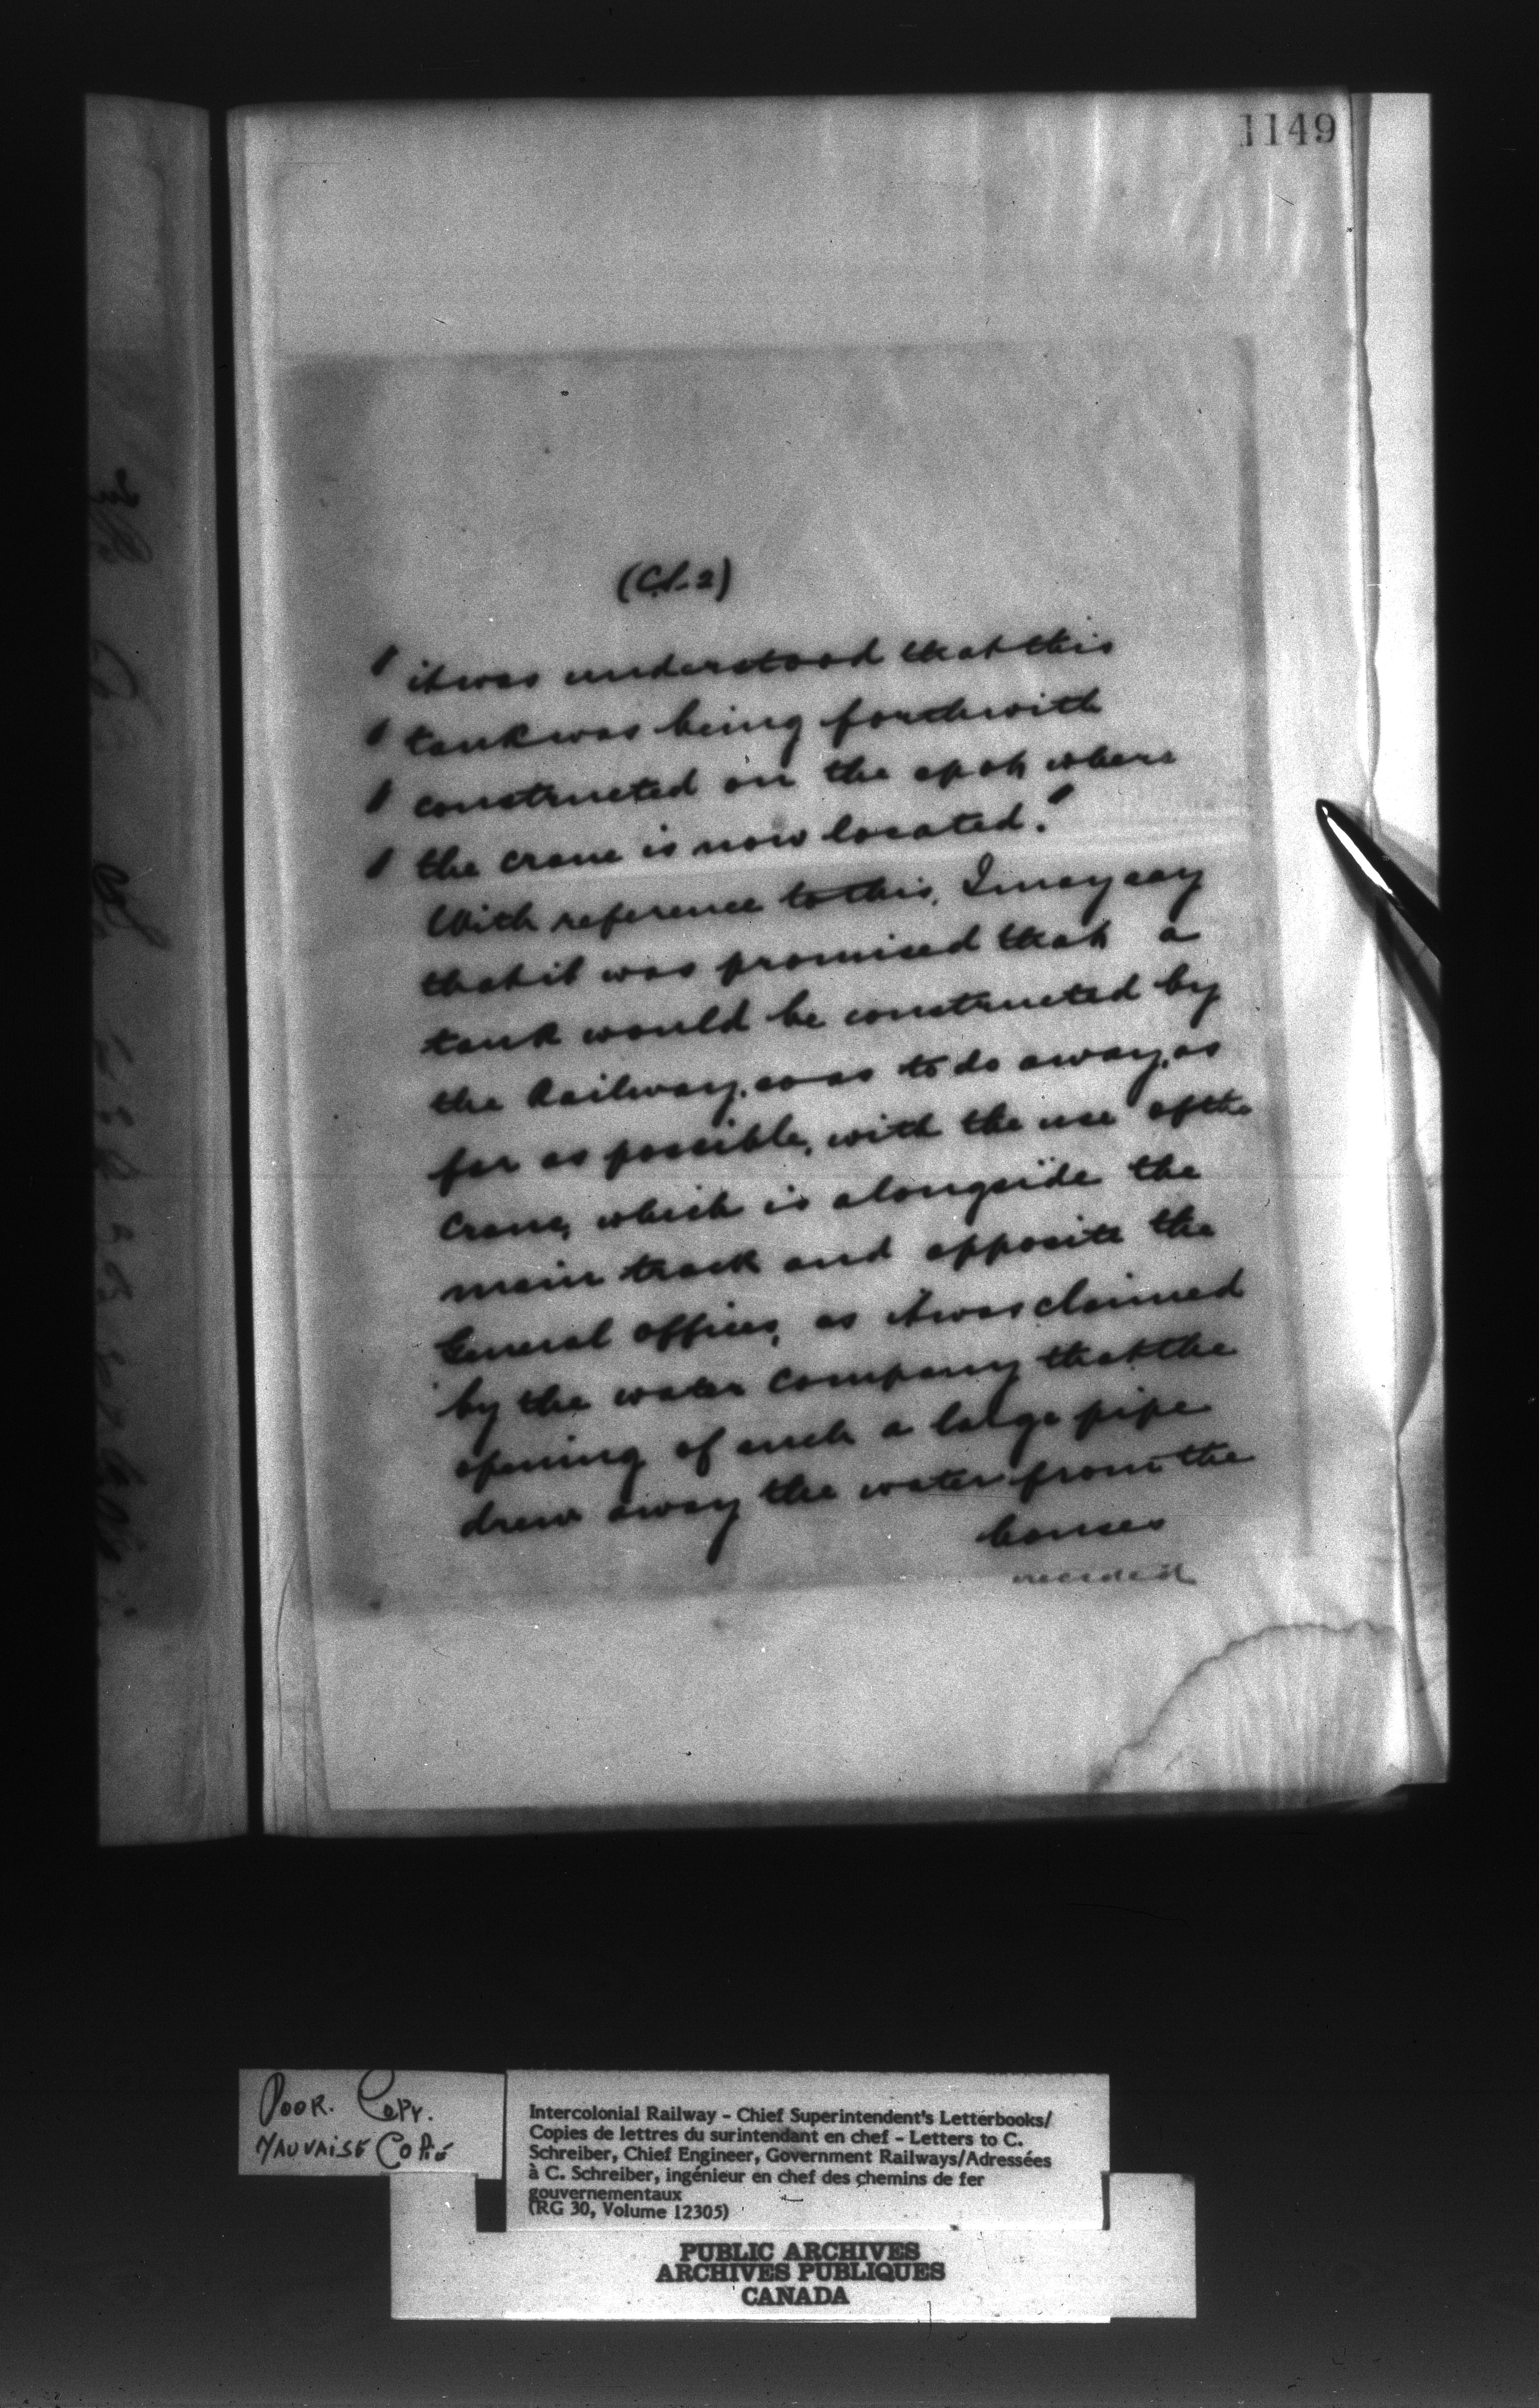 1149
(C.S. 2)
" it was understood that this
" tank was being forthwith
" constructed on the spot where
" the crane is now located."
With reference to this, I may say
that it was promised that a
tank would be constructed by
the Railway, so as to do away, as
far as possible, with the use of the
crane, which is alongside the
main track and opposite the
General offices, as it was claimed
by the water company that the
opening of such a large pipe
drew away the water from the
houses
Poor. Copy.
Mauvaise Copie
Intercolonial Railway - Chief Superintendent's Letterbooks/
Copies de lettres du surintendant en chef - Letters to C.
Schreiber, Chief Engineer, Government Railways/Adressées
à C. Schreiber, ingénieur en chef des chemins de fer
gouvernementaux
(RG 30, Volume 12305)
PUBLIC ARCHIVES
ARCHIVES PUBLIQUES
CANADA